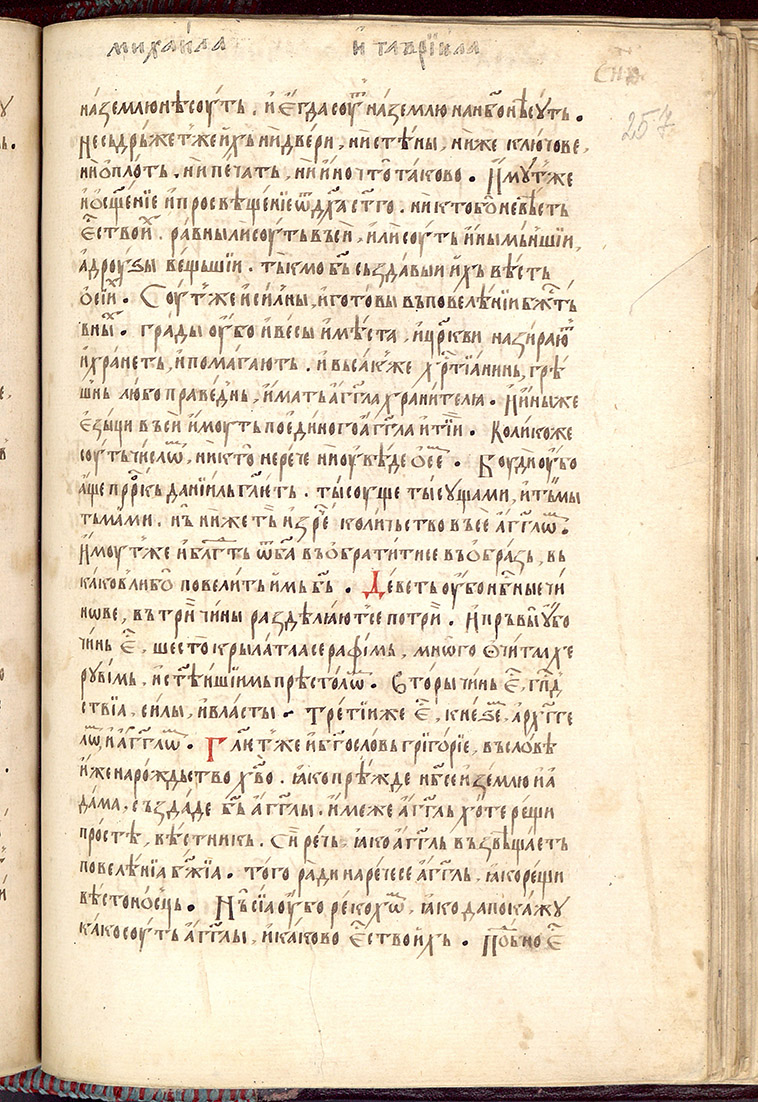 михаила и гаврїила
257
на землю не соуть. и егда соут на землю на нбо не суть.
не съдрьжет же ихъ ни двери, ни стѣны, ни же ключове,
ни оплотъ, ни печать, ни ино что таково. Имут же
и осщенїе и просвѣщенїе ѿ дха стго. никто бо не вѣсть
ества их. равны ли соуть въси, или соуть ины мьншїи,
а дроузы вещьшїи. тькмо бъ създавыи ихъ вѣсть
о сїих. Соут же и силны, и готовы въ повелѣнїи бжть
вных. грады оубо и веси и мѣста, и црькви назирают
и хранеть, и помагають. и въсак же хртїанинь, грѣ
шнь любо праведнь, имать аггла хранителя. Ииныже
езыци въси имоуть по единого аггла и тїи. Колико же
соуть числѡм, никто не рече ни оувѣде о се. Боуди оубо
аще пррокъ данїиль глеть. тысоуще тысущами, и тьмы
тьмами. нъ ниже ть изрече количьство въсе агглѡм.
Имоут же и блгть ѿ ба въ обратитисе въ образь, вь
каков либо повелить имь бъ. Деветь оубо и нбные чи
нове, въ три чины раздѣляютсе по три. И прьвыи оубо
чинь е, шестокрылатаа серафімь, много очитаа хе
рувімь, и стѣишїимь прѣстолѡм. Вторы чинь е, гпд
ствїа, силы, и власты ~ Третїи же е, кнезе, архгге
лѡм, и агглѡм. Глет же и бгословь григорїе, въ словѣ
иже на рождьство хво. яко прѣжде нбсе и землю и а
дама, създаде бъ агглы. имеже аггль хоте рещи
простѣ, вѣстникъ. Си речь, яко аггль възвѣщаеть
повелѣнїа бжїа. того ради наречесе аггль, яко рещи
вѣстоносць. Нъ сїа оубо рекохѡм, яко да покажу
како соуть агглы, и каково ество ихъ. Побно е